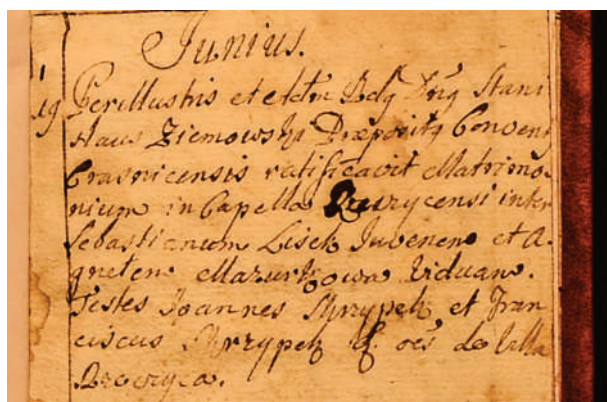 Junius.
19 Perillustris et Adm Rdg Dng Stani
slaus Ziemowski Præpositg Convent
Crasnicensis ratificavit Matrimo-
nium in Capella Rzeczycensi inter
Sebastianum Lisek Juvenem et A-
gnetem Mazurkowa Viduam.
Testes Joannes Skrzypek et Fran
ciscus Skrzypek de Villa